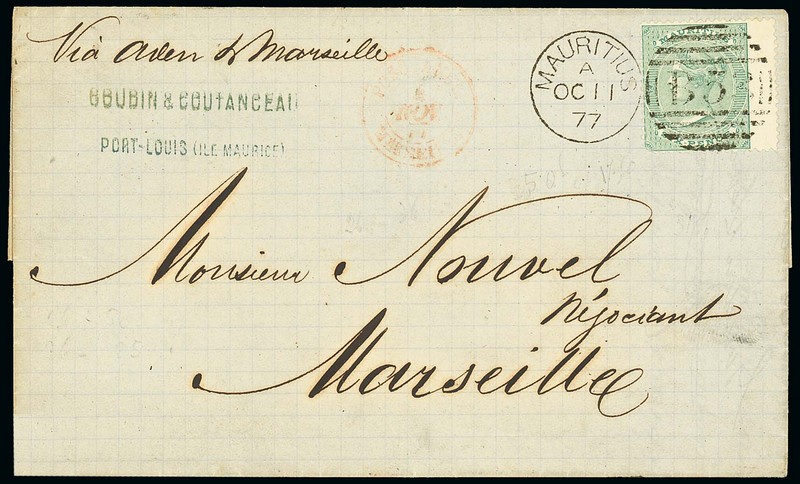 Via Aden & Marseille
BOUDIN & COUTANCEAU
PORT-LOUIS (ILE MAURICE)
MAURITIUS
A
OC 11
77
B53
Monsieur Nouvel
Négociant
Marseille